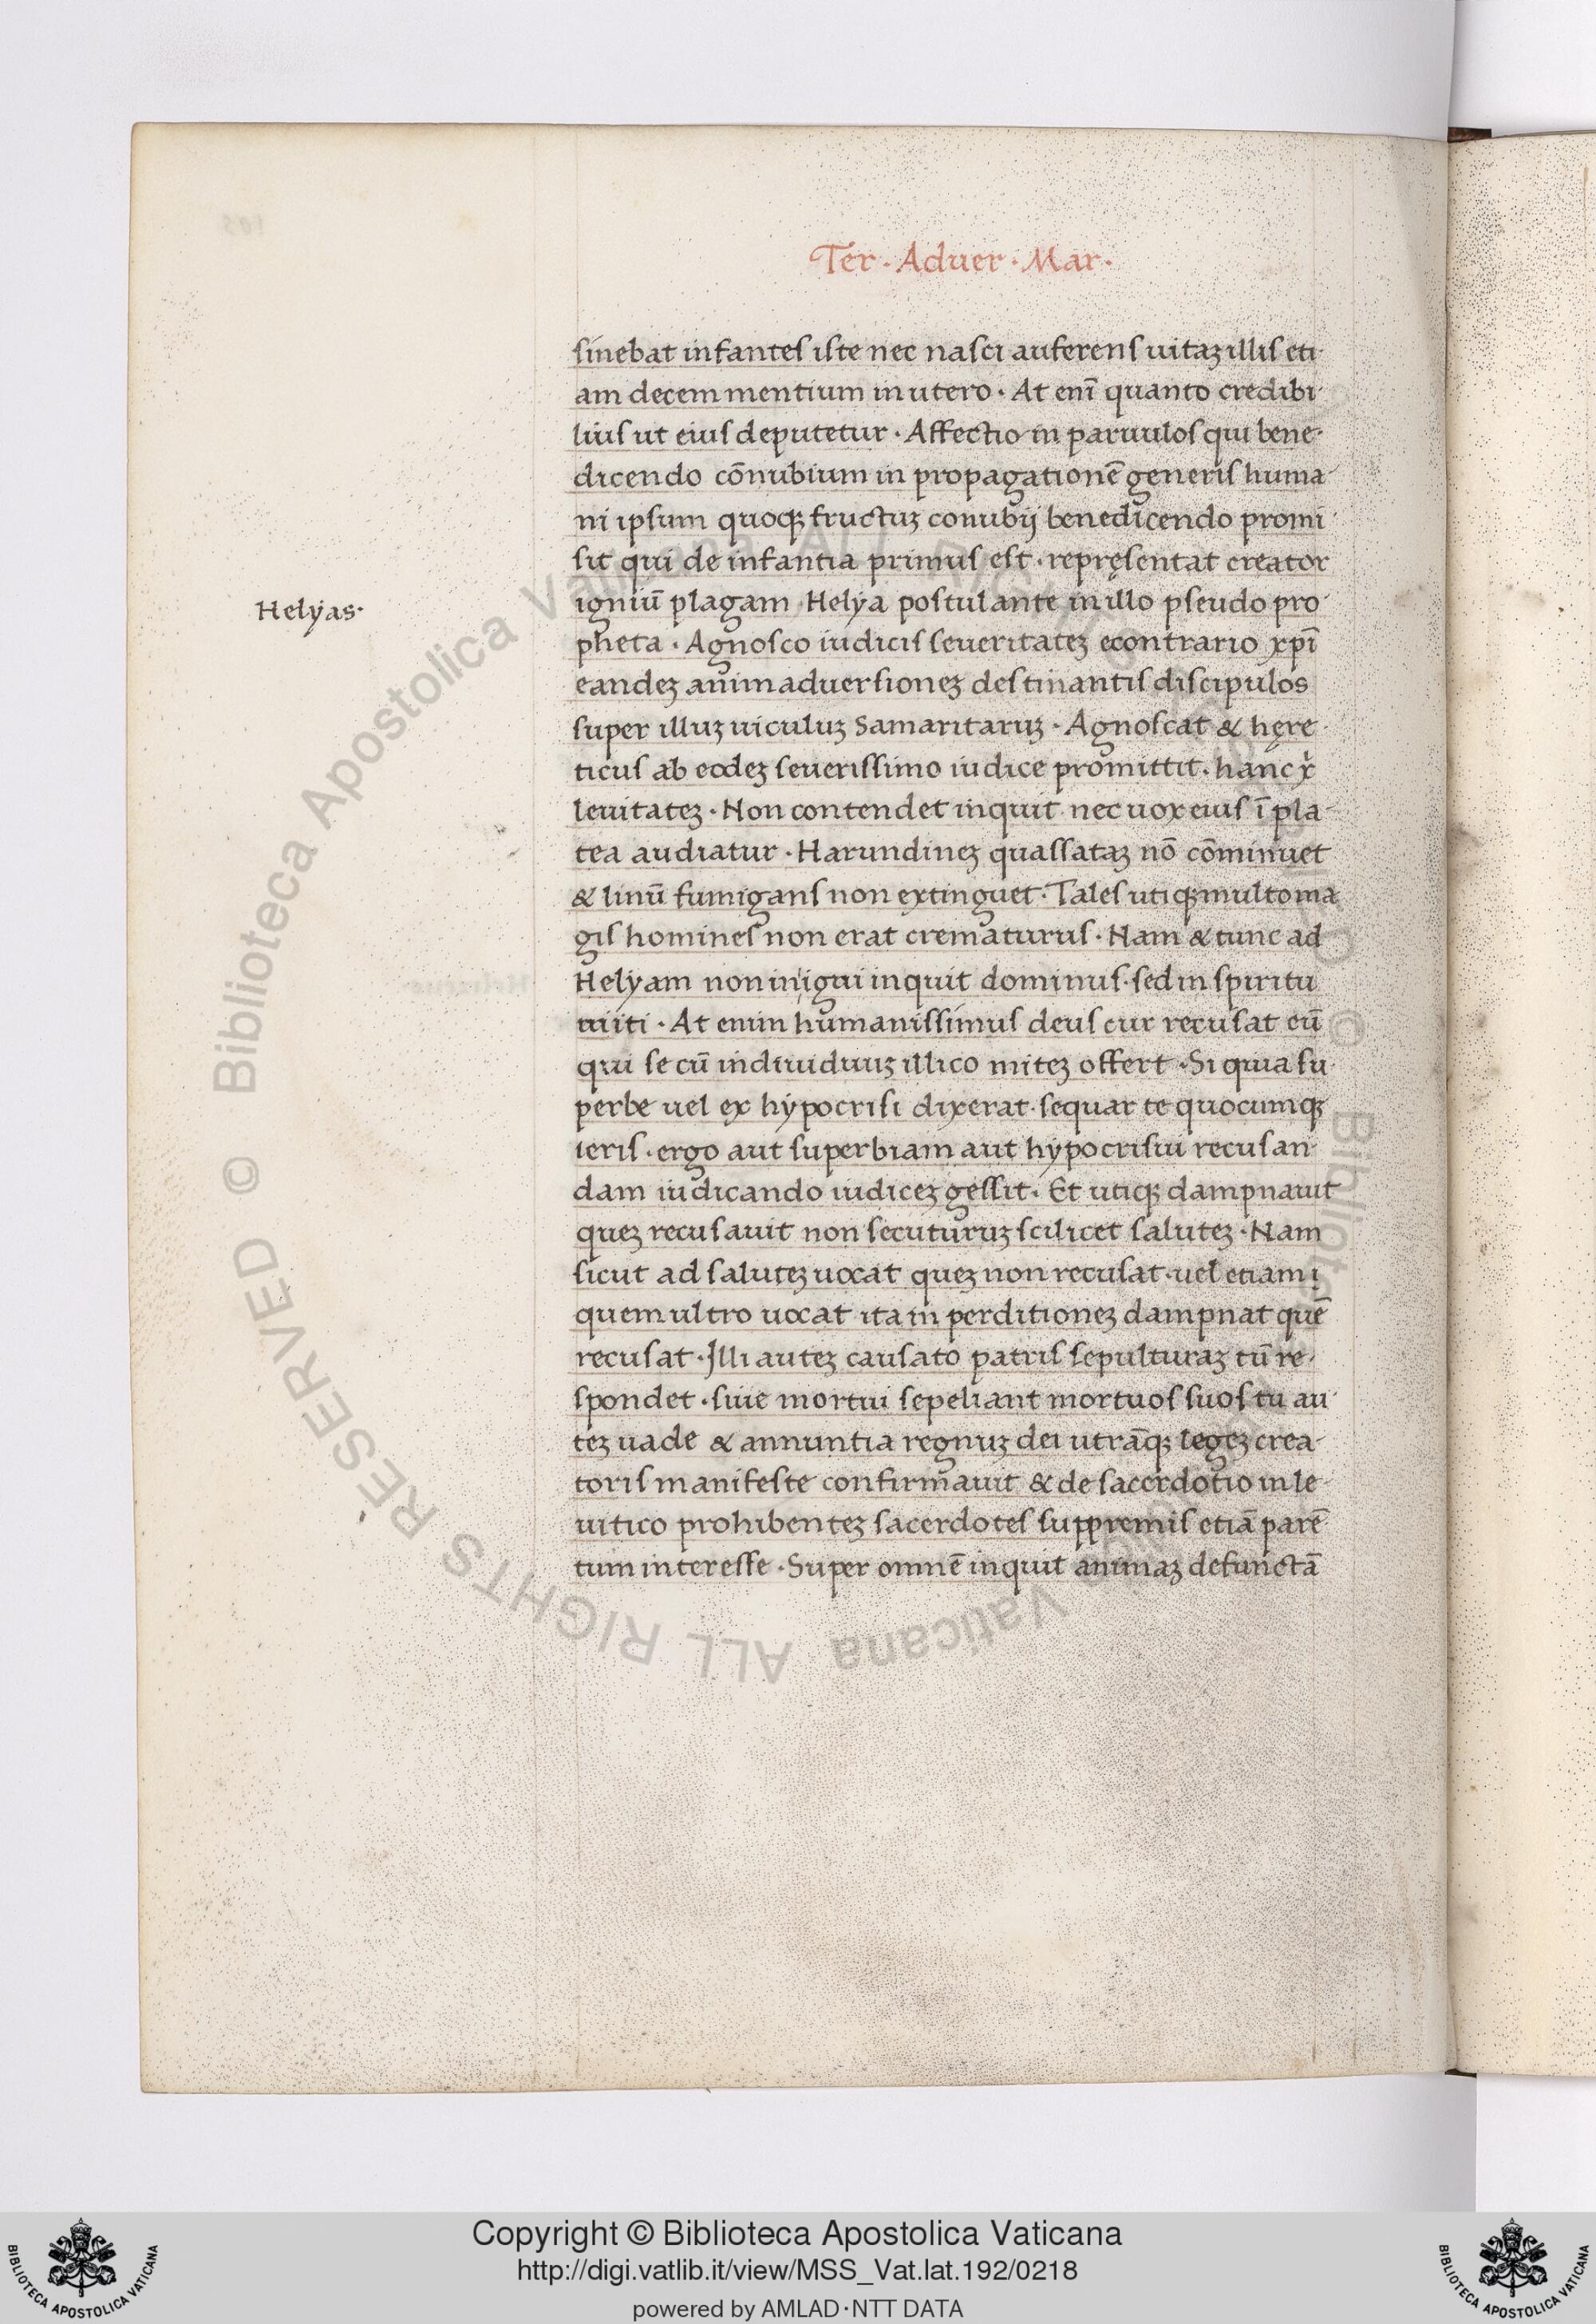 Ter · Aduer · Mar ·
sinebat infantes iste nec nasci auferens uitaꝫ illis eti-
am decem mentium in utero · At enī quanto credibi-
lius ut eius deputetur · Affectio in paruulos qui bene-
dicendo cōnubium in propagationē generis huma-
ni ipsum quoqꝫ fructuꝫ conubij benedicendo promi-
sit qui de infantia primus est · repręsentat creator
Helyas ·
igniū plagam Helya postulante in illo pseudo pro-
pheta · Agnosco iudicis seueritateꝫ econtrario xpī
eandeꝫ animaduersioneꝫ destinantis discipulos
super illuꝫ uiculuꝫ Samaritaruꝫ · Agnoscat & hęre-
ticus ab eodeꝫ seuerissimo iudice promittit · hanc x̄
leuitateꝫ · Non contendet inquit nec uox eius ī pla-
tea audiatur · Harundineꝫ quassataꝫ nō cōminuet
& linū fumigans non extinguet · Tales utiqꝫ multo ma
gis homines non erat crematurus · Nam & tunc ad
Helyam non in igni inquit dominus · sed in spiritu
miti · At enim humanissimus deus cur recusat eū
qui se cū indiuiduuꝫ illico miteꝫ offert · Si quia su-
perbe uel ex hypocrisi dixerat · sequar te quocumqꝫ
ieris · ergo aut superbiam aut hypocrisin recusan-
dam iudicando iudiceꝫ gessit · Et utiqꝫ dampnauit
queꝫ recusauit non secuturuꝫ scilicet saluteꝫ · Nam
sicut ad saluteꝫ uocat queꝫ non recusat · uel etiam
quem ultro uocat ita in perditioneꝫ dampnat quē
recusat · Illi auteꝫ causato patris sepulturaꝫ cū re-
spondet · sine mortui sepeliant mortuos suos tu au-
teꝫ uade & annuntia regnuꝫ dei utrāqꝫ legeꝫ crea-
toris manifeste confirmauit & de sacerdotio in le-
uitico prohibenteꝫ sacerdotes suppremis etiā parē-
tum interesse · Super omnē inquit animaꝫ defunctā
© Biblioteca Apostolica Vaticana ALL RIGHTS RESERVED © Biblioteca Apostolica Vaticana ALL RIGHTS RESERVED
Copyright © Biblioteca Apostolica Vaticana
http://digi.vatlib.it/view/MSS_Vat.lat.192/0218
powered by AMLAD·NTT DATA
BIBLIOTECA APOSTOLICA VATICANA
BIBLIOTECA APOSTOLICA VATICANA